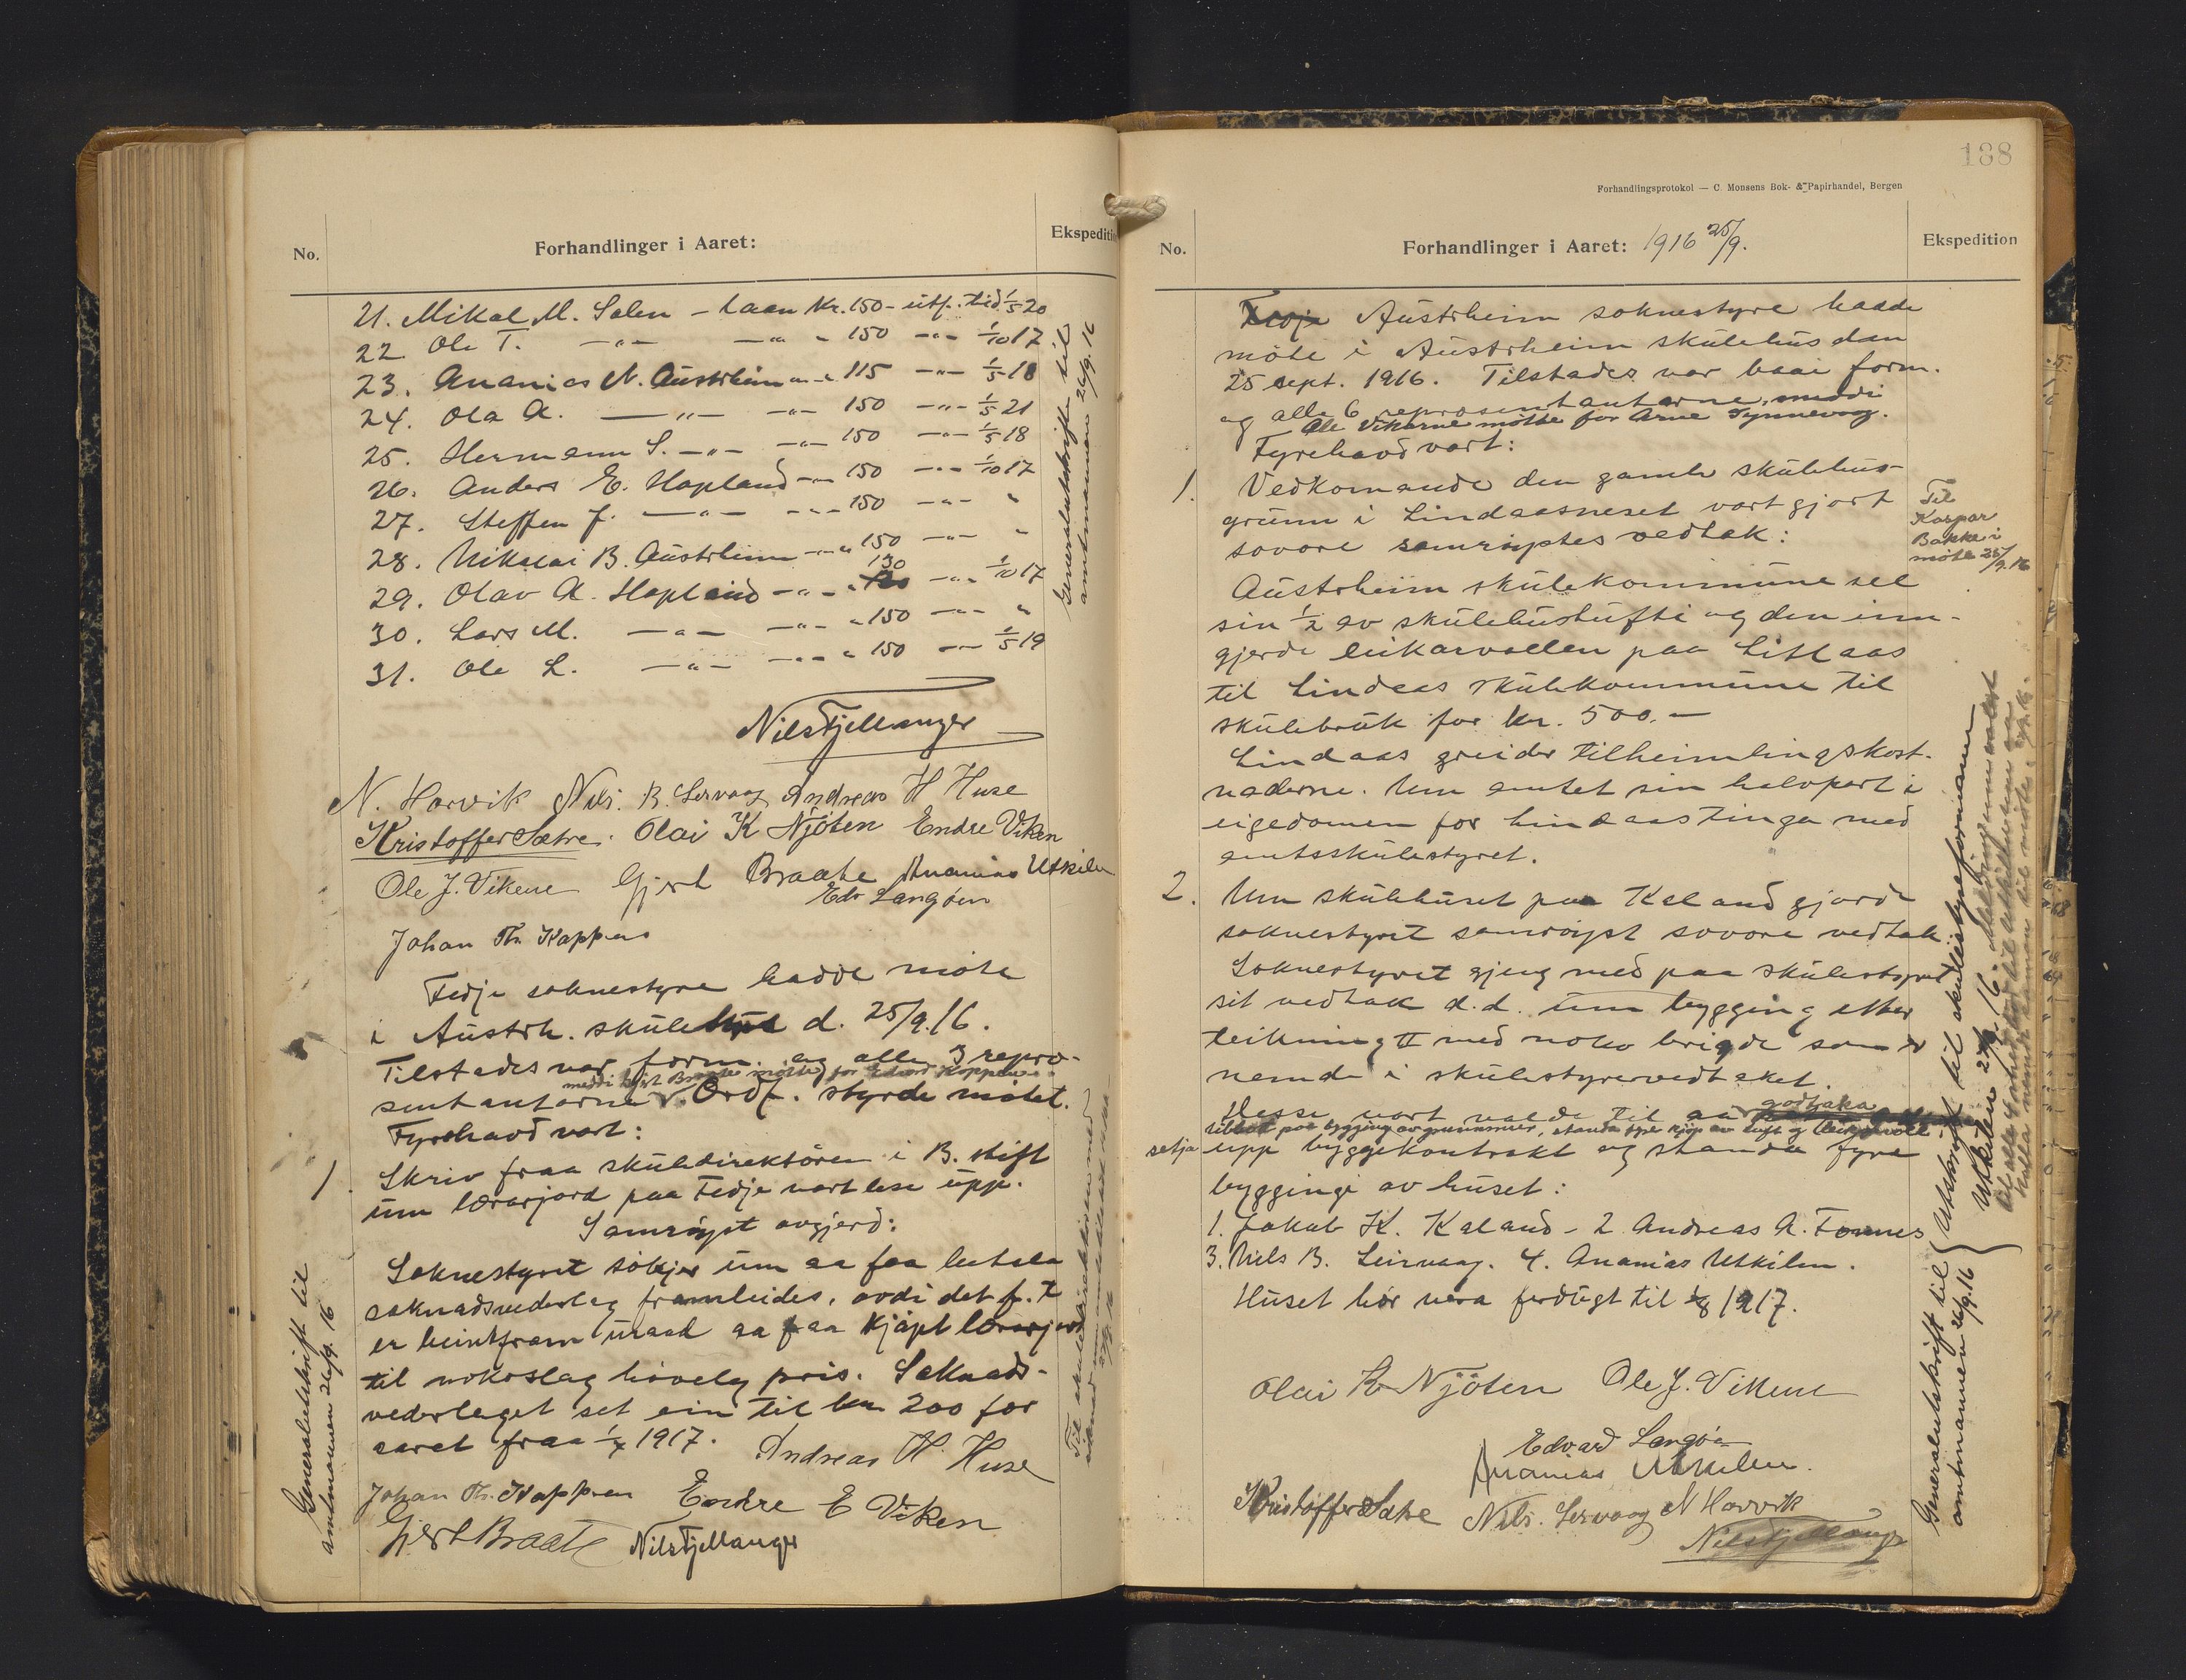 No.
Forhandlinger i Aaret:
Ekspedition
21. Mikal M. Salen - laan kr. 150 - utf. tid 1/5 20
22. Ole T. -"- -"- " 150 -"- 1/10 17
23. Ananias N. Austrheim -"- " 115 -"- 1/5 18
24. Ola A. -"- -"- 150 -"- 1/5 21
25. Hermann S. -"- -"- 150 -"- 1/5 18
26. Anders E. Hopland -"- 150 -"- 1/10 17
27. Steffen J. -"- -"- 150 -"- "
28. Nikolai B. Austrheim -"- " 150 -"- "
29. Olav A. Hopland -"- " 130 -"- 1/10 17
30. Lars M. -"- -"- " 150 -"- "
31. Ole L. -"- -"- " 150 -"- 1/5 19
Generalutskrift til
amtmannen 26/9. 16
Nils Fjellanger
N. Horvik Nils. B. Lervaag Andreas H Huse
Kristoffer Sætre. Olai K Njøten Endre Viken
Ole J. Vikene Gjert Braate Ananias Utkilen
Edv Langøen
Johan Th. Koppen
Fedje soknestyre hadde møte
i Austrh. skulehus d. 25/9. 16.
Tilstades var form. og alle 3 repre-
meddi Gjert Braate møtte for Edvard Koppen
sentantarne. Ordf. styrde møtet.
Fyrehavd vart:
1. Skriv fraa skuledirektøren i B. stift
um lærarjord paa Fedje vart lese upp.
Samrøyst avgjerd:
Soknestyret søkjer um aa faa betala
saknadsvederlag framleides, avdi det f. t.
er beintfram uraad aa faa kjøpt lærarjord
til nokoslag høveleg pris. Saknads-
vederlaget set ein til kr 200 for
aaret fraa 1/7 1917.
Andreas H. Huse
Johan Th. Koppen Endre E Viken
Gjert Braate Nils Fjellanger
Generalutskrift til
amtmannen 26/9. 16
Til skuledirektøren med
138
Forhandlingsprotokol — C. Monsens Bok- & Papirhandel, Bergen
No.
Forhandlinger i Aaret: 1916 25/9.
Ekspedition
Fedje Austrheim soknestyre hadde
møte i Austrheim skulehus den
25 sept. 1916. Tilstades var baai form.
og alle 6 representantarne, meddi
Ole Vikane møtte for Arne Synnevaag.
Fyrehavd vart:
1. Vedkomande den gamle skulehus-
grunn i Lindaasneset vart gjort
sovore samrøystes vedtak:
Til
Kaspar
Bakke i
møte 25/9. 16
Austrheim skulekommune sel
sin 1/2 av skulehustufti og den inn-
gjerde leikarvollen paa Litlaas
til Lindaas skulekommune til
skulebruk for kr. 500.-
Lindaas greider tilheimlingskost-
naderne. Um amtet sin halvpart i
eigedomen fær Lindaas tinga med
amtsskulestyret.
2. Um skulehuset paa Kaland gjorde
soknestyret samrøyst sovore vedtak.
Soknestyret gjeng med paa skulestyret
sit vedtak d.d. um bygging etter
teikning II med noko brigde som er
nemde i skulestyrevedtaket.
Desse vart valde til aa godtaka
tilbod paa bygging av grunnmur, standa fyre kjøp av tuft og leikarvoll
setja upp byggjekontrakt og standa fyre
bygginge av huset:
1. Jakob K. Kaland - 2 Andreas A. Fonnes
3. Nils B. Leirvaag. 4. Ananias Utkilen.
Huset bør vera ferdugt til 1/8 1917.
Olai K Njøten Ole J. Vikene
Edvard Langøen
Ananias Utkilen.
Kristoffer Sætre Nils. Lervaag N Horvik
Nils Fjellanger
Generalutskrift til
amtmannen 26/9. 16
Utskrift til skulestyreformannen